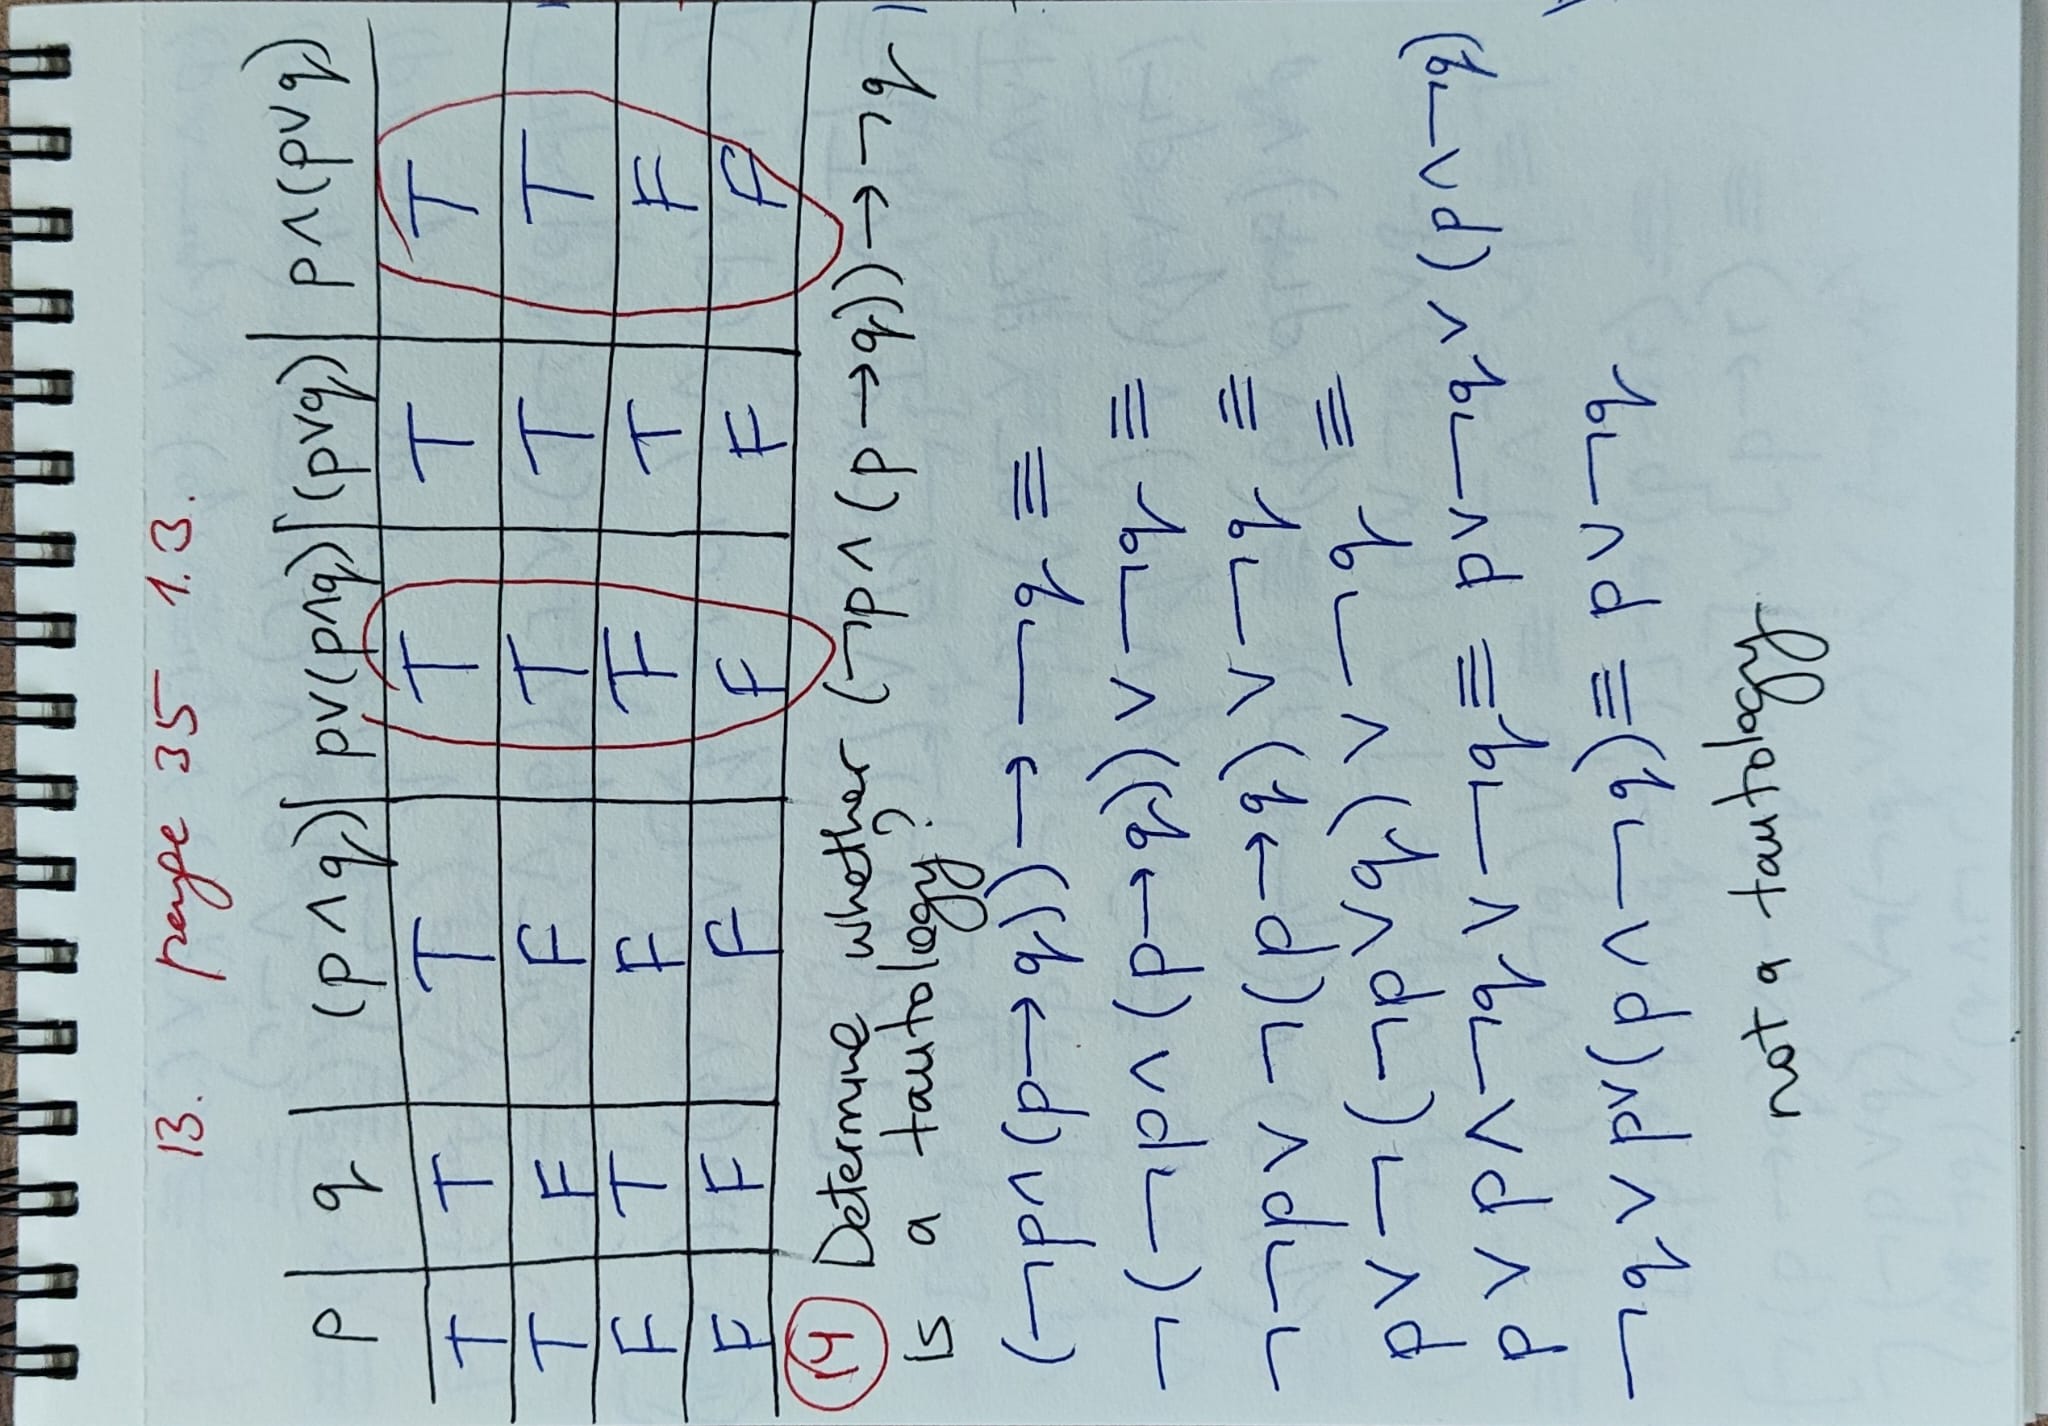 13. page 35 1.3.
p q (p ∧ q) p∨(p∧q) (p∨q) p∧(p∨q)
T T T T T T
T F F T T T
F T F F T F
F F F F F F
14 Determine whether (¬p ∧ (p → q)) → ¬q
is a tautology?
(¬p ∧ (p → q)) → ¬q ≡
¬(¬p ∧ (p → q)) ∨ ¬q ≡
¬¬p ∨ ¬(p → q) ∨ ¬q ≡
p ∨ ¬(¬p ∨ q) ∨ ¬q ≡
p ∨ p ∧ ¬q ∨ ¬q ≡ p ∨ ¬q ∨ (p ∨ ¬q)
¬q ∨ p ∨ (p ∨ ¬q) ≡ p ∨ ¬q
not a tautology